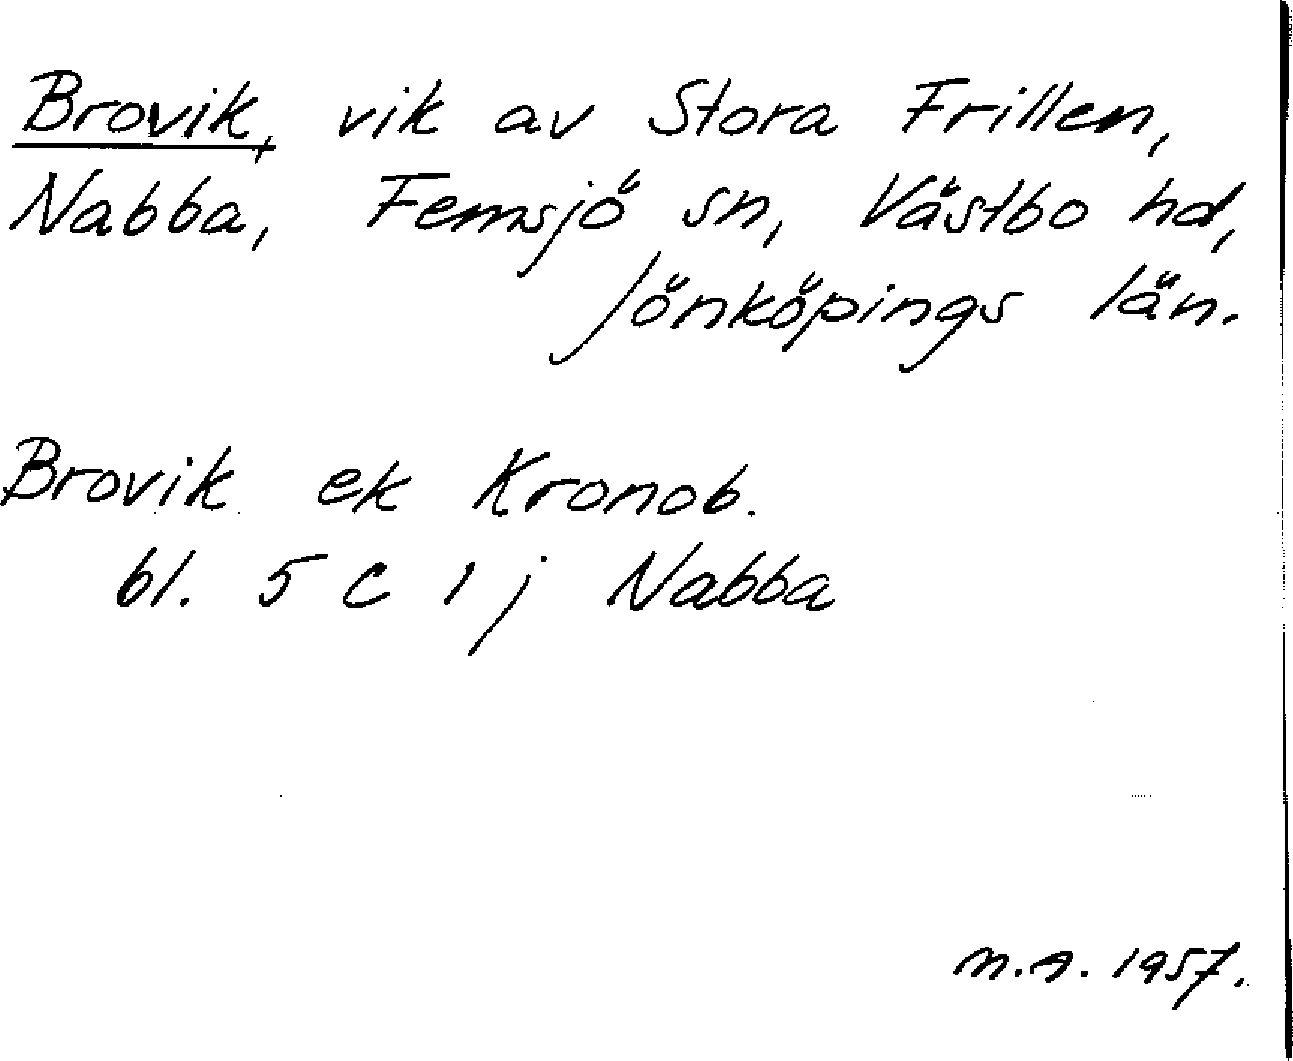 Brovik, vik av Stora Frillen,
Nabba, Femsjö sn, Västbo hd,
Jönköpings län.
Brovik ek Kronob.
bl. 5 C 1 j Nabba
M.A. 1957.